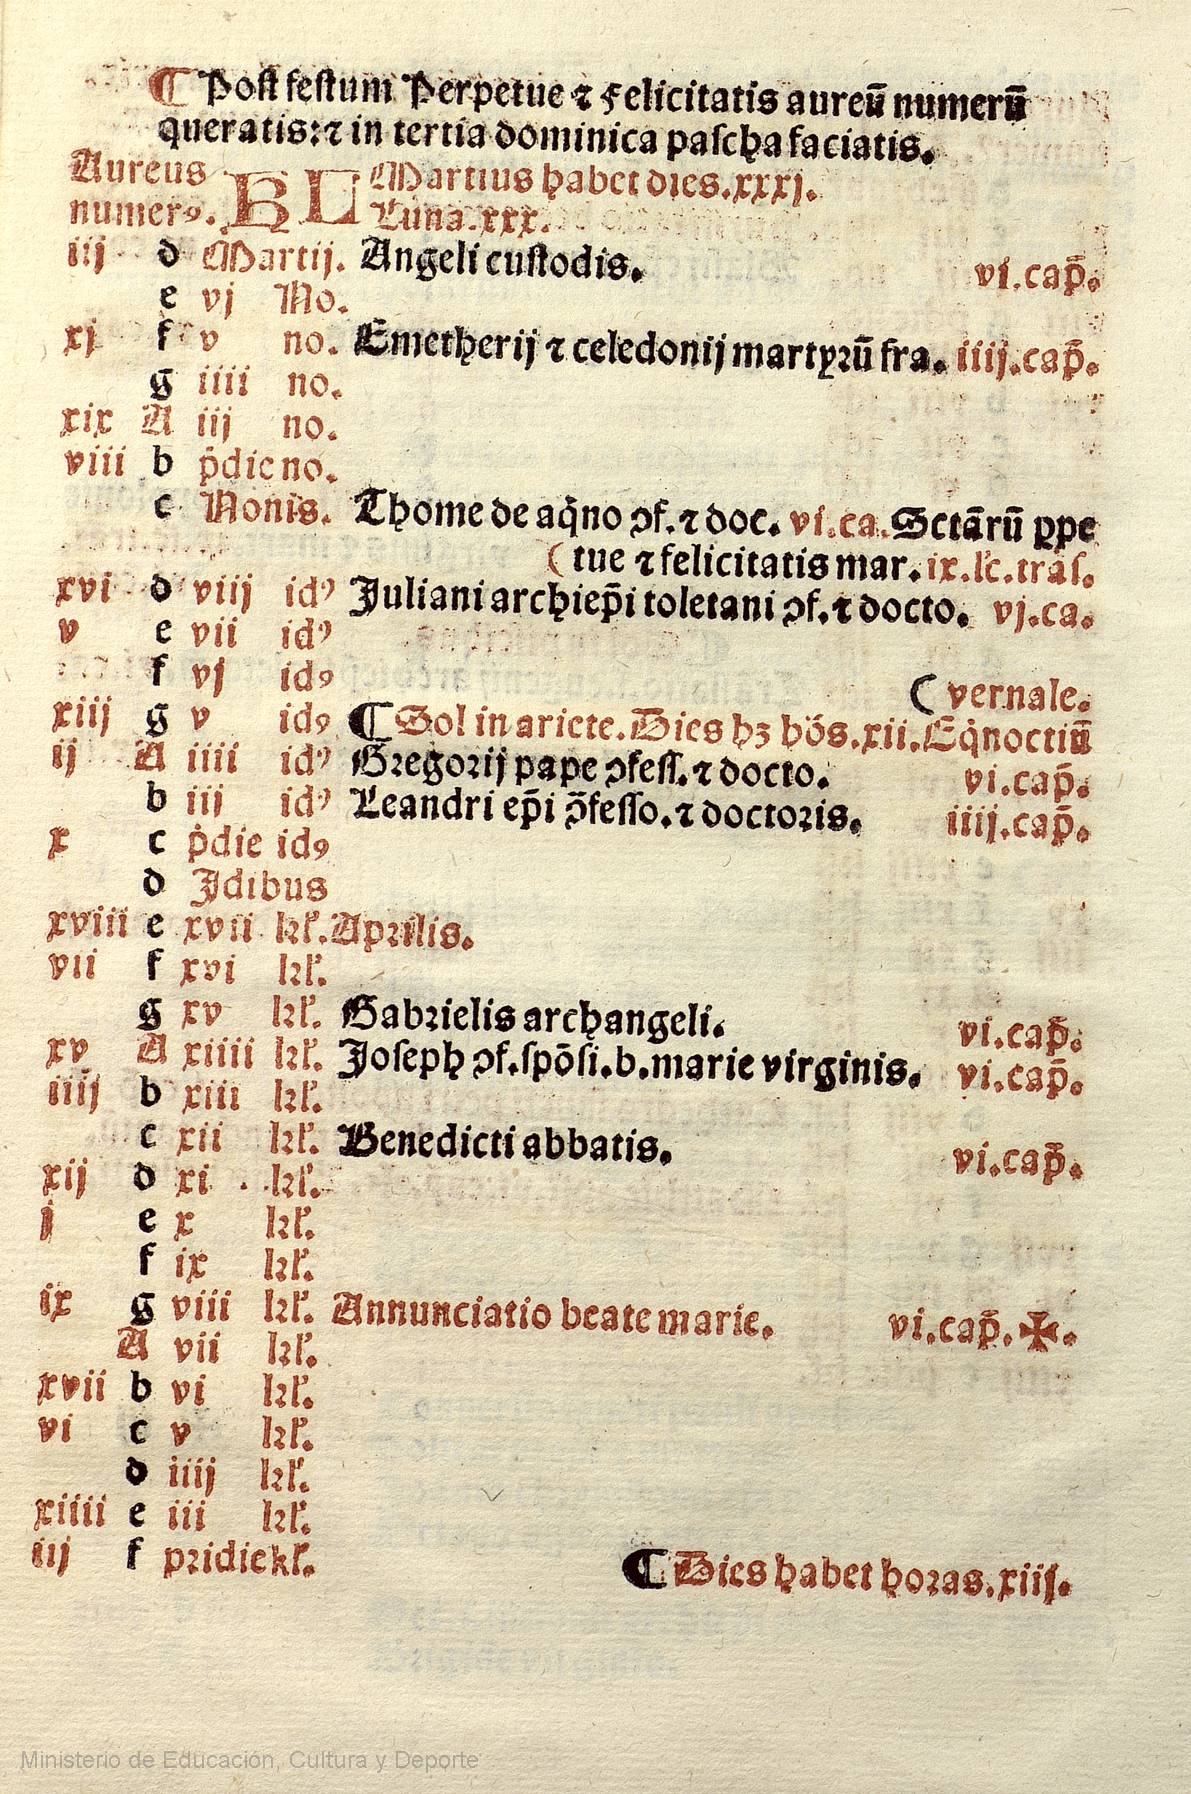 ¶ Post festum Perpetue ⁊ Felicitatis aureū numerū
queratis:⁊ in tertia dominica pascha faciatis.
Aureus KL Martius habet dies.xxxj.
numerꝰ. Luna.xxx.
iij d Martij. Angeli custodis. vi.cap̄.
e vj No.
xj f v no. Emetherij ⁊ celedonij martyrū fra. iiij.cap̄.
g iiii no.
xix A iij no.
viii b p̍die no.
c Nonis. Thome de aq̍no ↄf.⁊ doc. vi.ca. Sctārū ꝑpe
(tue ⁊ felicitatis mar. ix.lc̄.tras.
xvi d viij idꝰ Juliani archiep̄i toletani ↄf.⁊ docto. vj.ca.
v e vii idꝰ
f vj idꝰ (vernale.
xiij g v idꝰ ¶ Sol in ariete. Dies hꝫ hōs.xii. Eq̍noctiū
ij A iiii idꝰ Gregorij pape ↄfess.⁊ docto. vi.cap̄.
b iij idꝰ Leandri ep̄i ↄ̄fesso.⁊ doctoris. iiij.cap̄.
x c p̍die idꝰ
d Jdibus
xviii e xvii kl̓. Aprilis.
vii f xvi kl̓.
g xv kl̓. Gabrielis archangeli. vi.cap̄.
xv A xiiii kl̓. Joseph ↄf.spōsi.b.marie virginis. vi.cap̄.
iiij b xiii kl̓.
c xii kl̓. Benedicti abbatis. vi.cap̄.
xij d xi kl̓.
j e x kl̓.
f ix kl̓.
ix g viii kl̓. Annunciatio beate marie. vi.cap̄.✠.
A vii kl̓.
xvii b vi kl̓.
vi c v kl̓.
d iiij kl̓.
xiiii e iii kl̓.
iij f pridie kl̓. ¶ Dies habet horas.xiij.
Ministerio de Educación, Cultura y Deporte